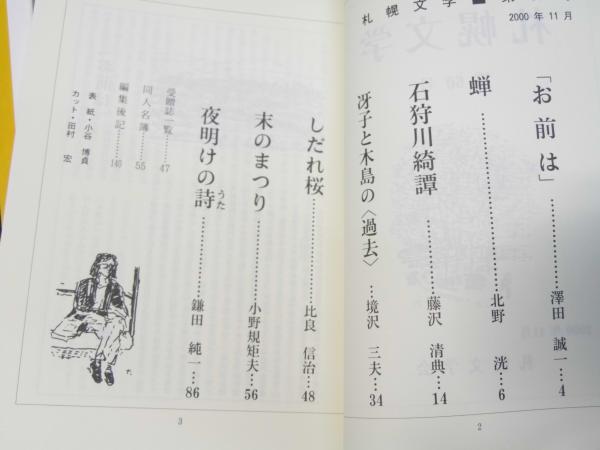 札幌文学
2000年11月
「お前は」…澤田 誠一…4
蝉…北野 洸…6
石狩川綺譚…藤沢 清典…14
冴子と木島の〈過去〉…境沢 三夫…34
2
しだれ桜…比良 信治…48
末のまつり…小野規矩夫…56
夜明けの詩…鎌田 純一…86
うた
受贈誌一覧…47
同人名簿…55
編集後記…140
表紙・小谷 博貞
カット・田村 宏
3